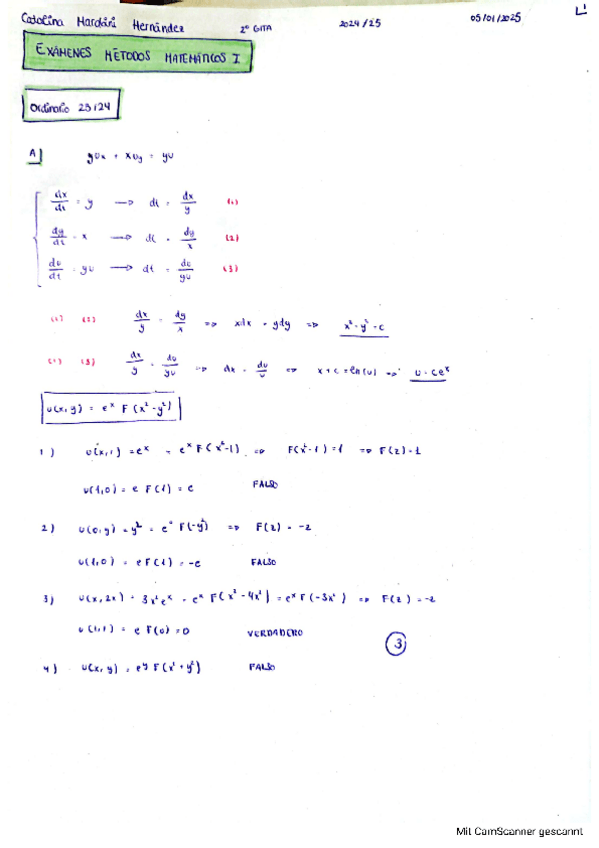 Catalina Mardari Hernández 2º GITA 2024/25 05/01/2025
EXÁMENES MÉTODOS MATEMÁTICOS I
Ordinario 23/24
A) yux + xuy = yu
dx/dt = y → dt = dx/y (1)
dy/dt = x → dt = dy/x (2)
du/dt = yu → dt = du/yu (3)
(1) (2) dx/y = dy/x => xdx = ydy => x² - y² = c
(1) (3) dx/y = du/yu => dx = du/u => x + c = ln(u) => u = ce^x
u(x,y) = e^x F(x² - y²)
1) u(x,1) = e^x = e^x F(x²-1) => F(x²-1) = 1 => F(z) = 1
u(1,0) = e F(1) = e FALSO
2) u(0,y) = y² = e^0 F(-y²) => F(z) = -z
u(1,0) = e F(1) = -e FALSO
3) u(x,2x) = 3x²e^x = e^x F(x² - 4x²) = e^x F(-3x²) => F(z) = -z
u(1,1) = e F(0) = 0 VERDADERO
3
4) u(x,y) = e^y F(x² + y²) FALSO
Mit CamScanner gescannt